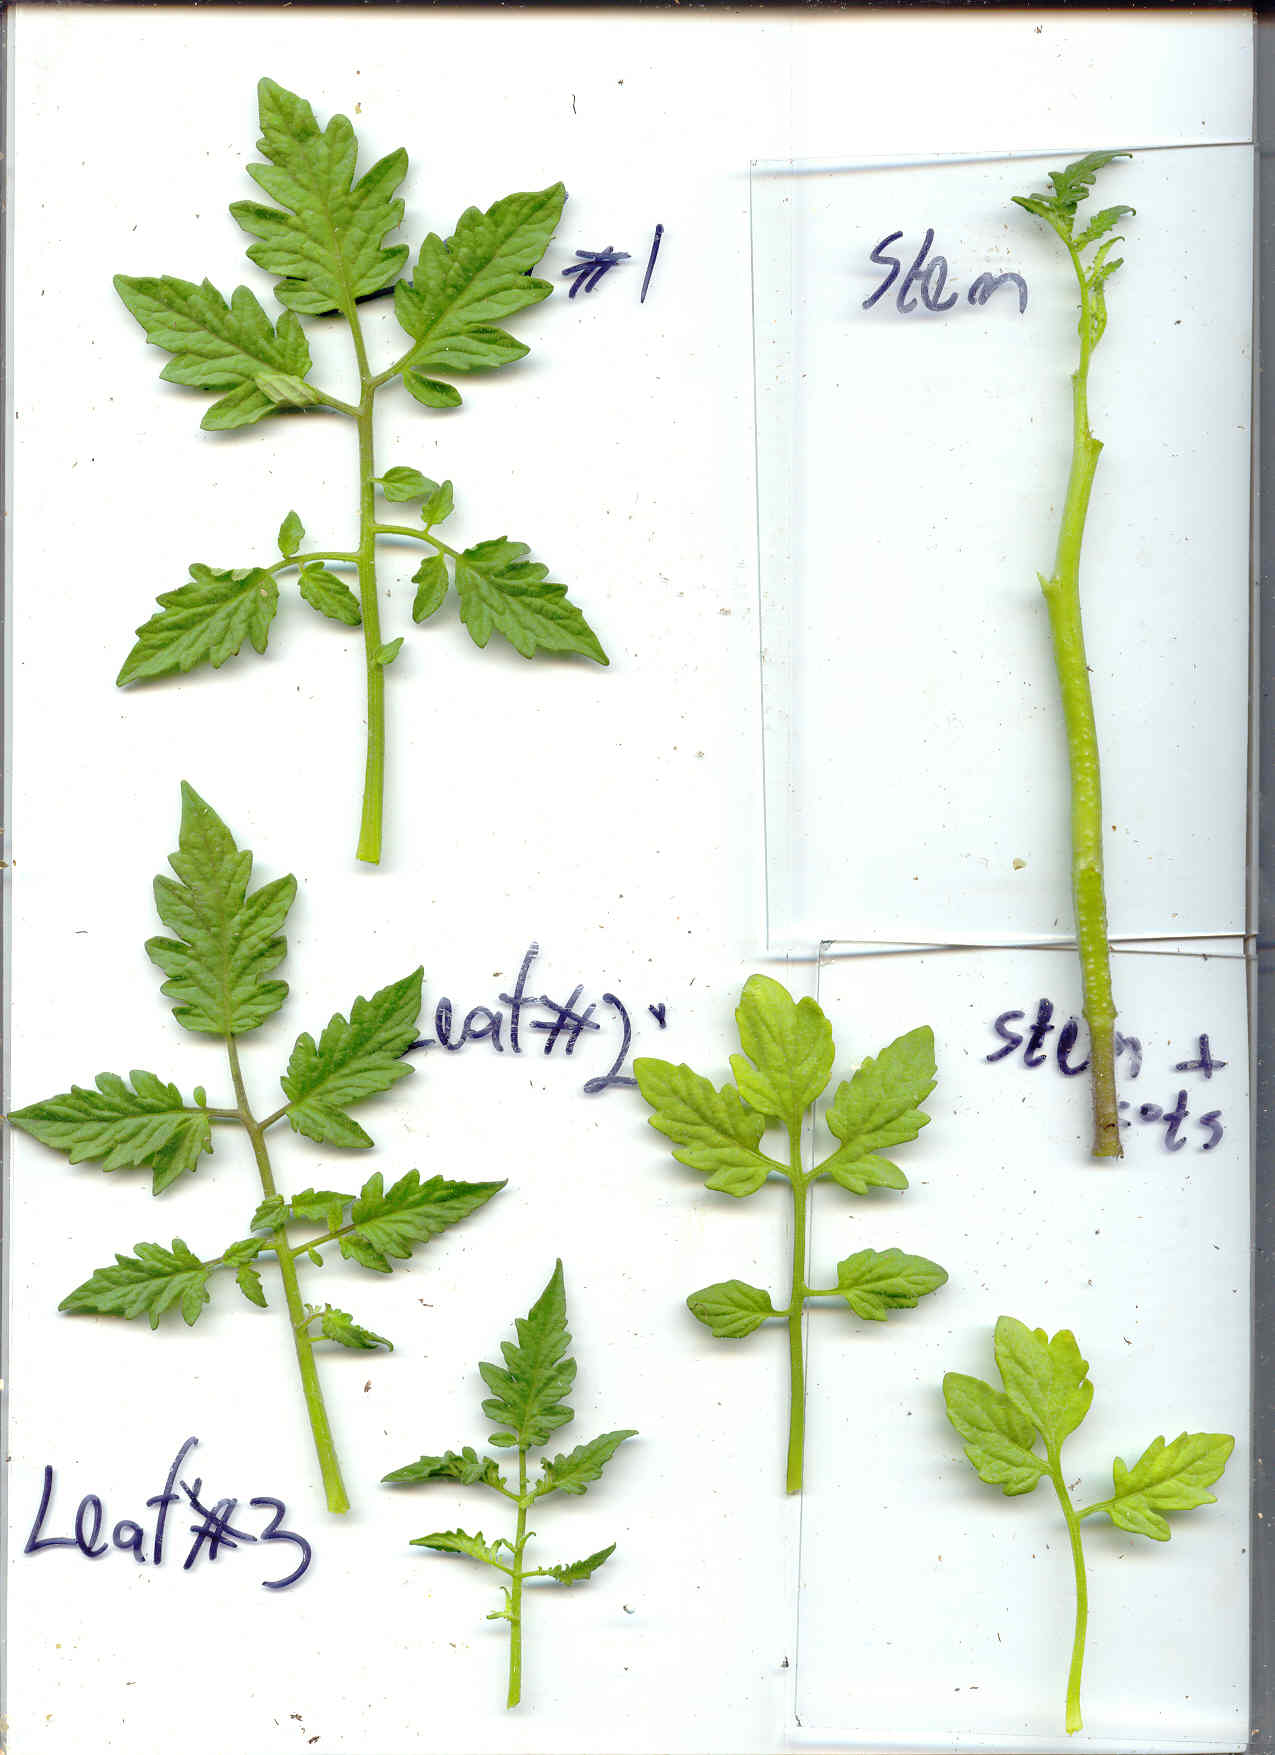 #1
Stem
Leaf #2
stem +
Leaf #3